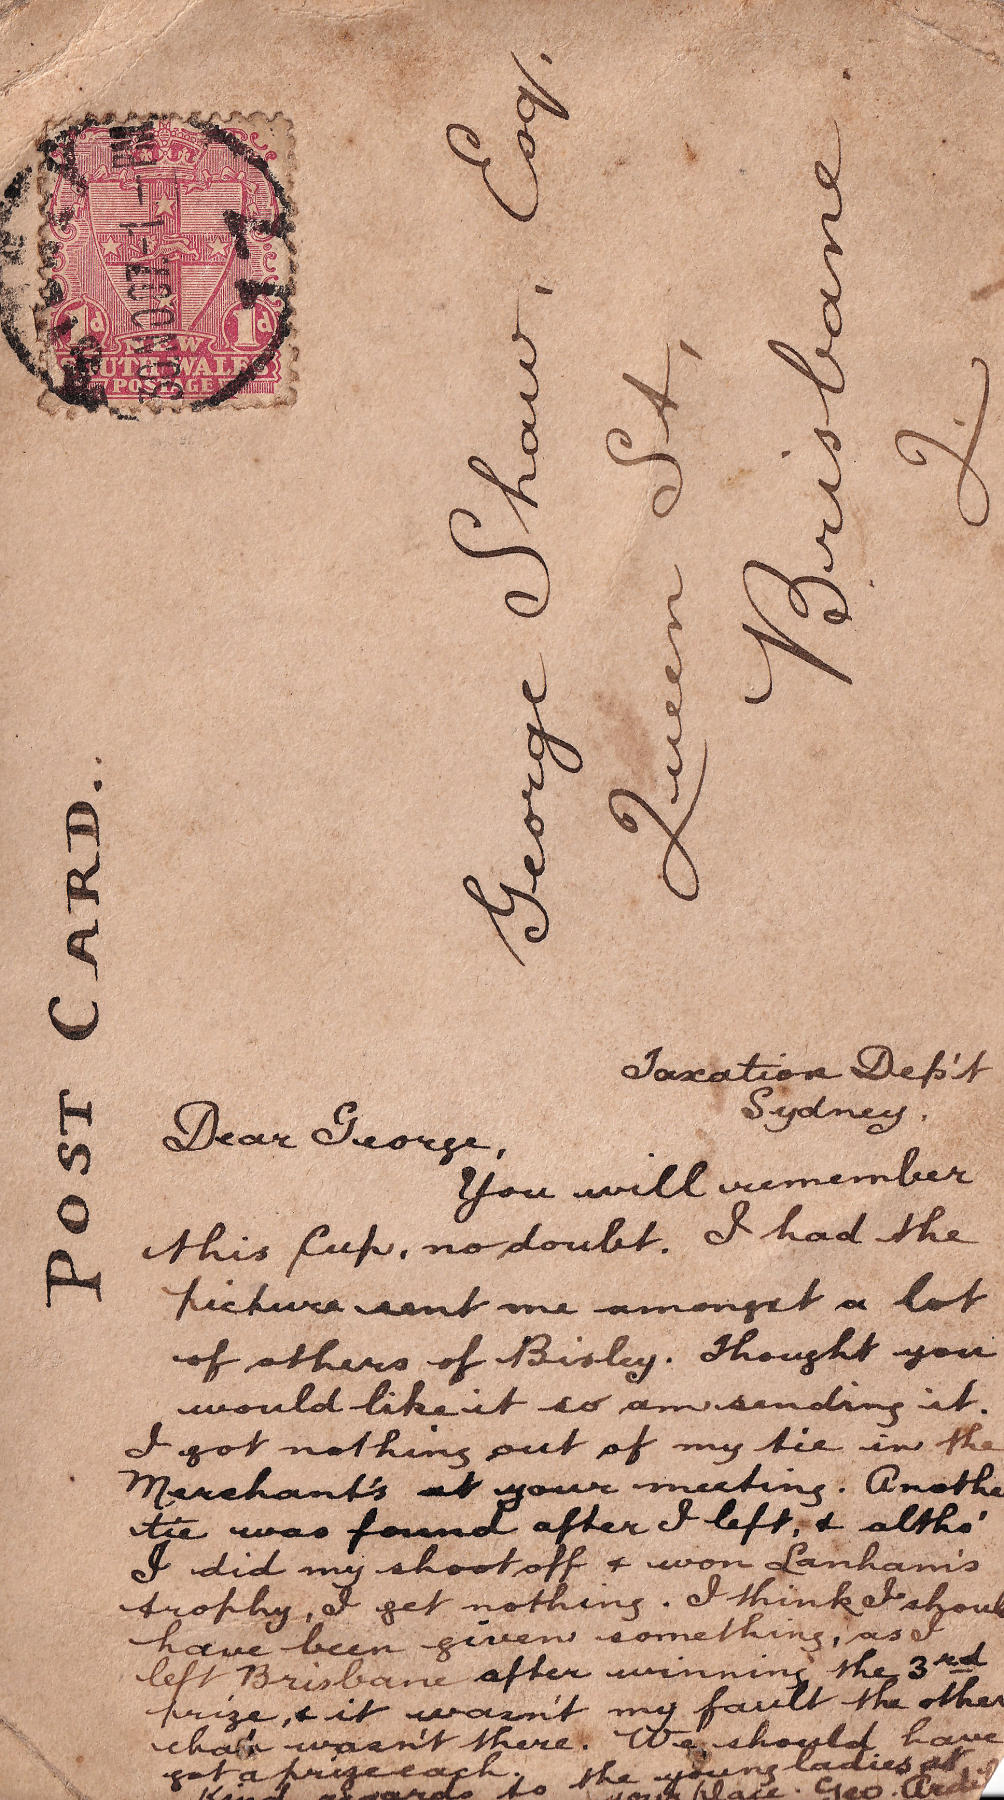 POST CARD.
1d 1d
NEW
SOUTH WALES
POSTAGE
George Shaw, Esq.
Queen St,
Brisbane
Q.
Taxation Dep't
Sydney.
Dear George,
You will remember
this Cup, no doubt. I had the
picture sent me amongst a lot
of others of Bisley. Thought you
would like it so am sending it.
I got nothing out of my tie in the
Merchant's at your meeting. Anothe
tie was found after I left, & altho'
I did my shoot off & won Lanham's
trophy, I get nothing. I think I shoul
have been given something, as I
left Brisbane after winning the 3rd
prize, & it wasn't my fault the other
chap wasn't there. We should have
got a prize each.
Kind regards to the young ladies at
your place. Geo.